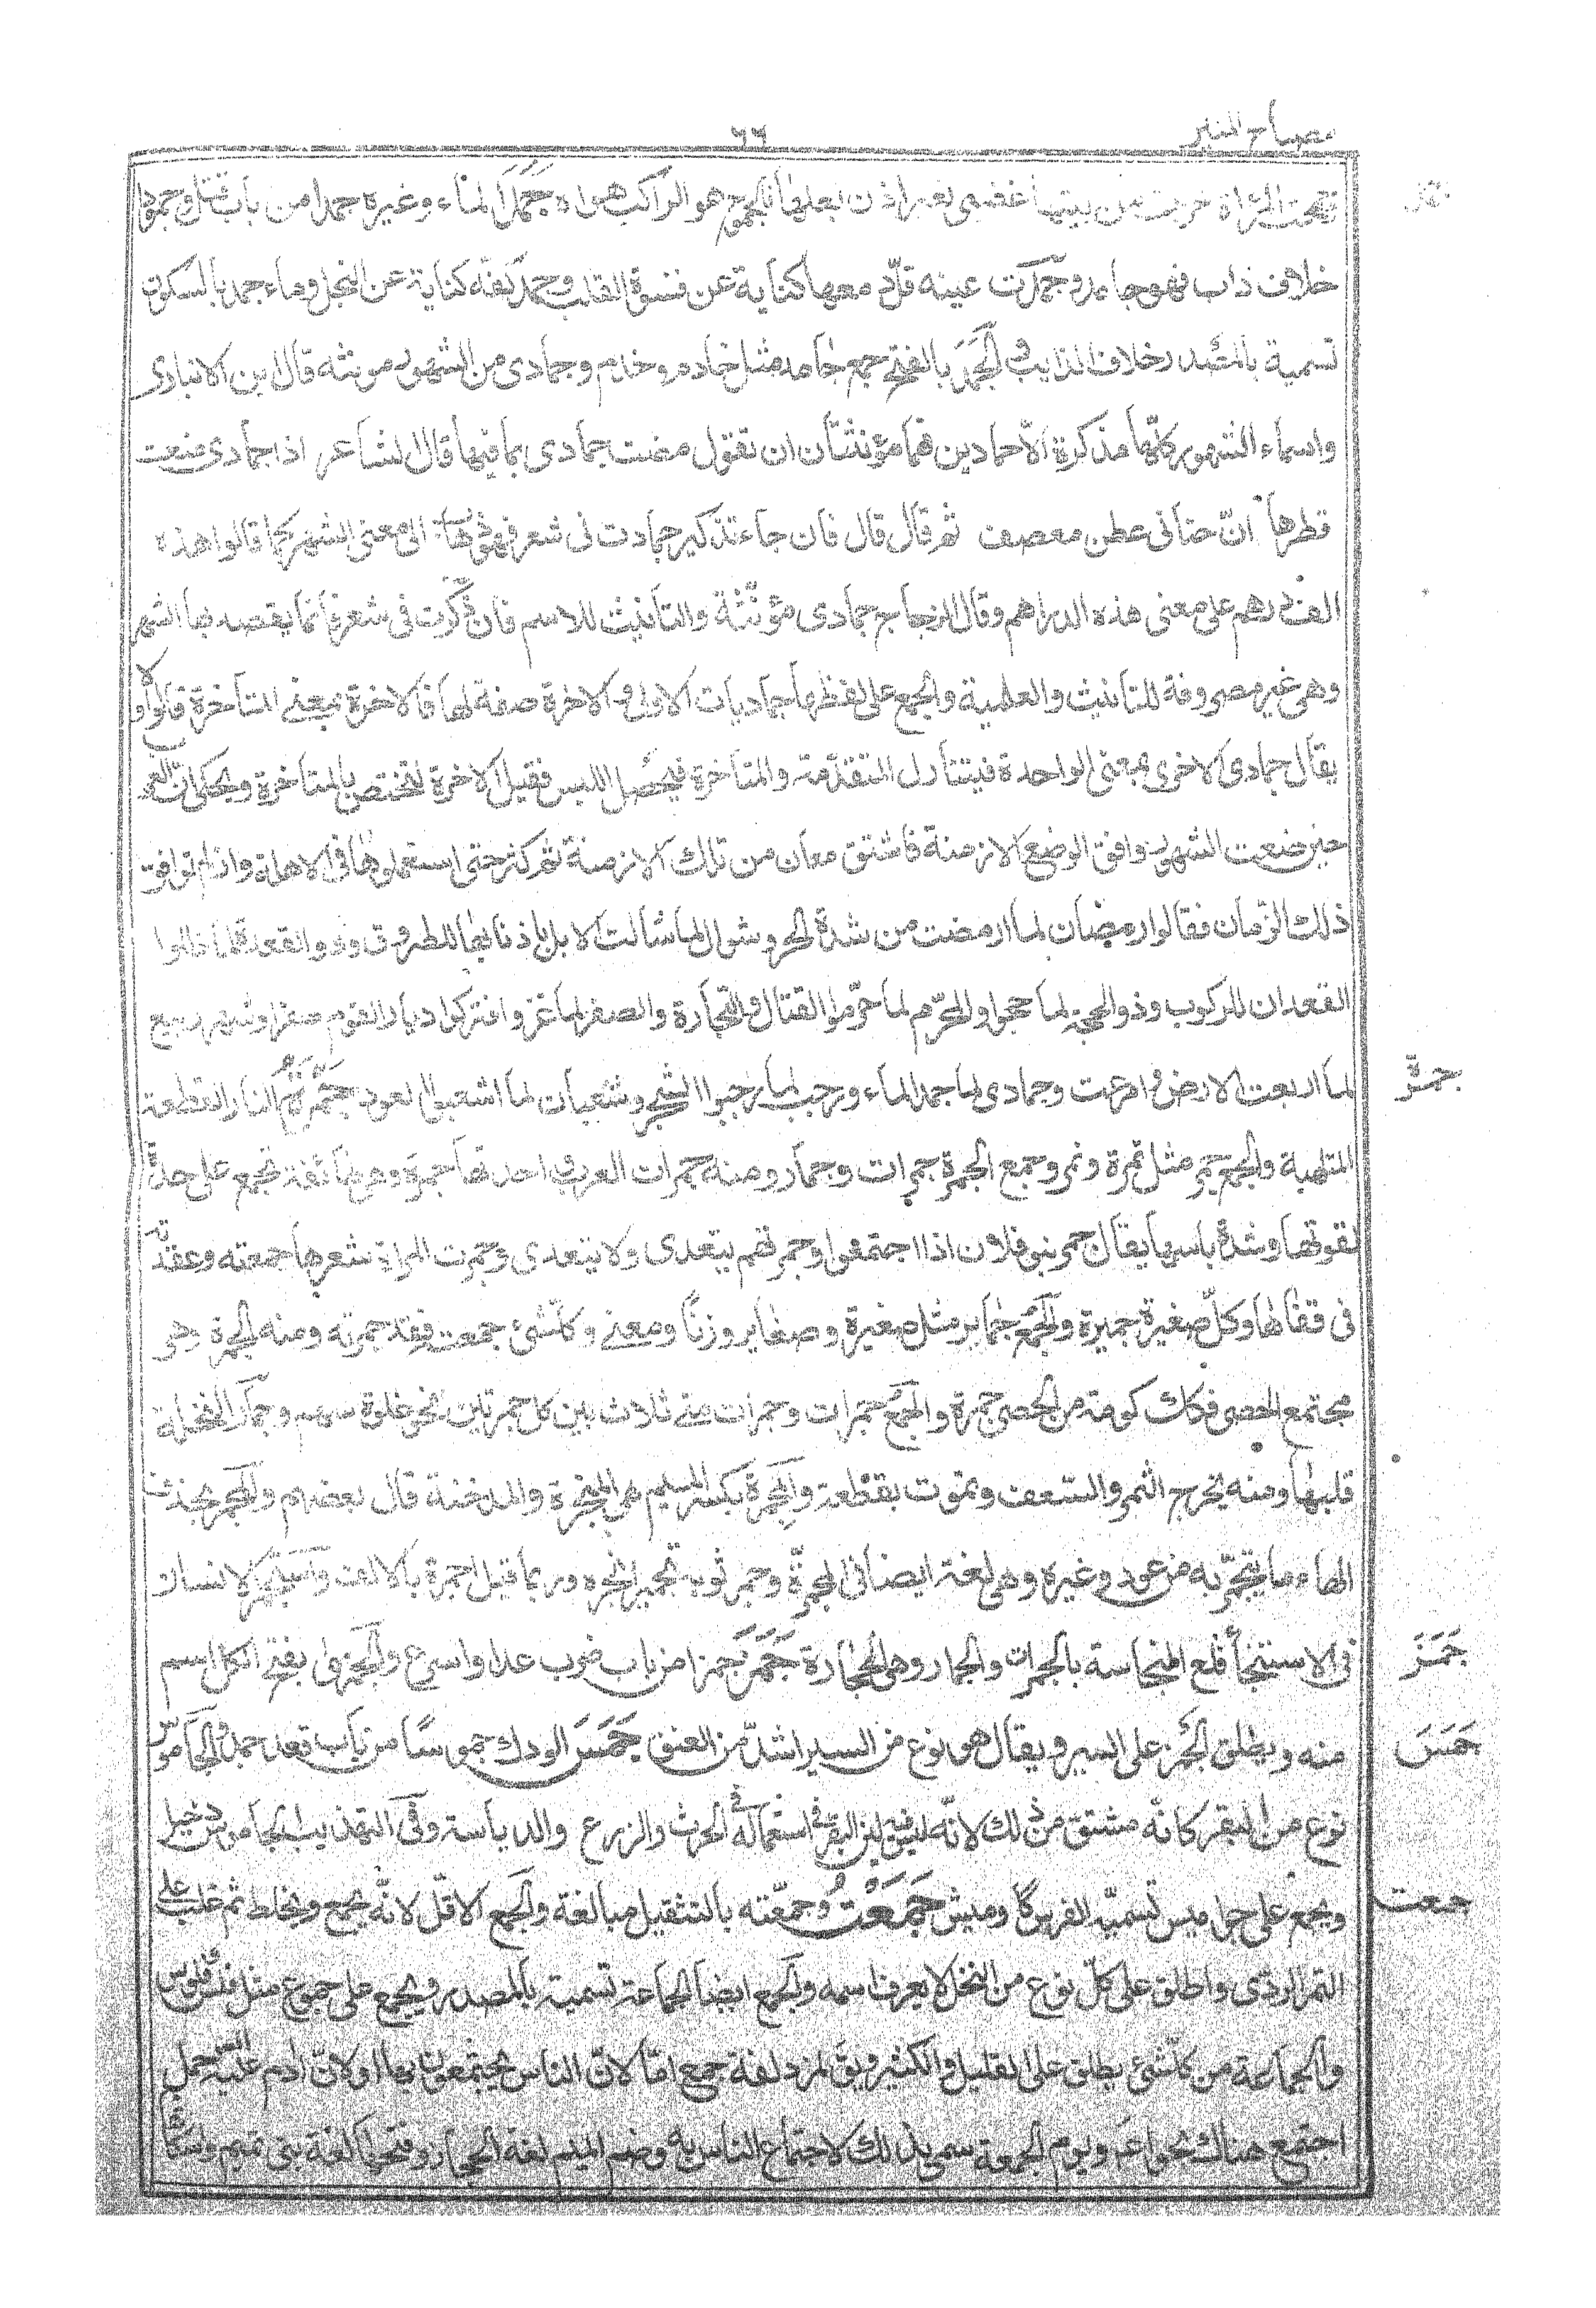 مصباح المنير
٦٦
جمحت المراة خرجت من بيتها غضبى بغير اذن بعلها فالجموح هو الراكب هواه جَمَدَ الماء وغيره جمدا من باب قتل وجمودا
خلاف ذاب فهو جامد وجمدت عينه قلّ دمعها كناية عن قسوة القلب وجمد كفه كناية عن البخل وماء جمد بالسكون
تسمية بالمصدر خلاف الذايب والجَمَد بالفتح جمع جامد مثل خادم وخدم وجمادى من الشهور مونثه قال ابن الانبارى
واسماء الشهور كلها مذكرة الا جمادين فهما مؤنثان ان تقول مضت جمادى بما فيها قال الشاعر اذا جمادى منعت
قطرها انّ جنانى عطن معصف ثم قال قال فان جاء تذكير جمادت فى شعر فهو الى معنى الشهر كما قالوا هذه
الف درهم على معنى هذه الدراهم وقال الزجاج جمادى مؤنّثة والتانيث للاسم فان ذكرت فى شعر فانما يقصد بها الشهر
وهى غير مصروفة للتانيث والعلمية والجمع على لفظها جماديات الاولى والاخرة صفة لها فالاخرة بمعنى المتاخرة قالوا ولا
يقال جمادى الاخرى بمعنى الواحدة فيتناول المتقدّمة والمتاخرة فيحصل اللبس فقيل الاخرة لتختص بالمتاخرة ويحكى ان العرب
حين ضعت الشهور وافق الوضع الازمنة فاشتق معان من تلك الازمنة ثم كثر حتى استعملوها فى الاهلة وان لم توافق
ذلك الزمان فقالوا رمضان لما ارمضت من شدة الحر وشوال لما شالت الابل باذنابها للطروق وذو القعدة لما ذللوا
القعدان للركوب وذو الحجة لما حجوا والمحرّم لما حرّموا القتال والتجارة والصفر لما غزوا فتركوا ديار القوم صفرا وشهر ربيع
لما اربعت الارض وامرعت وجمادى لما جمد الماء ورجب لما رجبوا الشجر وشعبان لما اشعبوا العود جَمْرَةُ النار القطعة
المتلهبة والجمع جمر مثل تمرة وتمر وجمع الجمرة جمرات وجمار ومنه جمرات العرب احدتها جمرة وهى طائفة تجمع على حدة
لقوتها وشدة باسها يقال جمر بنو فلان اذا اجتمعوا وجمرتهم يتعدى ولا يتعدى وجمرت المراة شعرها جمعته وعقدته
فى قفاها وكلّ صغيرة جميرة والجمع جمايرمثل صغيرة وصغاير وزنًا ومعنى وكل شئ جمعته فقد جمرته ومنه الجمرة وهى
مجتمع الحصى فكل كومة من الحصى جمرة والجمع جمرات وجمرات منى ثلاث بين كل جمرتين نحو غلوة سهم وجمار النخلة
قلبها ومنه يخرج الثمر والسعف وتموت بقطعه والمجمرة بكسر الميم هى المبخرة والمدخنة قال بعضهم والمجمر بحذف
الهاء ما يتجمر به من عود وغيره وهى لغة ايضا فى المجمرة وجمر ثوبه تجميرا بخره وربما قيل اجمرة بالالف واستجمر الانسان
فى الاستنجأ قلع النجاسة بالجمرات والجمار وهى الحجارة جَمَزَ جمزا من باب ضرب عدا واسرع والجمزى بفتح الكل اسم
منه ويطلق الجمز على السير ويقال هو نوع من السير اشدّ من العنق جَمَسَ الودك جموسا من باب قعد جمد والجاموس
نوع من البقر كانّه مشتق من ذلك لانه ليس فيه لين البقر فى استعماله فى الحرث والزرع والدياسة وفى التهذيب الجاموس دخيل
ويجمع على جواميس تسميه الفرس كاوميش جَمَعْتُ وجمعّته بالتثقيل مبالغة والجمع الاقل لانه يجمع ويخلط ثم غلب على
التمر الردى واطلق على كلّ نوع من النخل لا يعرف اسمه والجمع ايضا الجماعة تسمية بالمصدر ويجمع على جموع مثل فلس فلوس
والجماعة من كل شئ يطلق على القليل والكثير ويق لمزدلفة جمع اما لانّ الناس يجتمعون بها او لانّ ادم عليه السم
اجتمع هناك بحوا ويوم الجمعة سمى بذلك لاجتماع الناس به وضم الميم لغة الحجاز وفتحها لغة بنى تميم واسكانها
جمر
جَمَزَ
جَمَسَ
جمعت